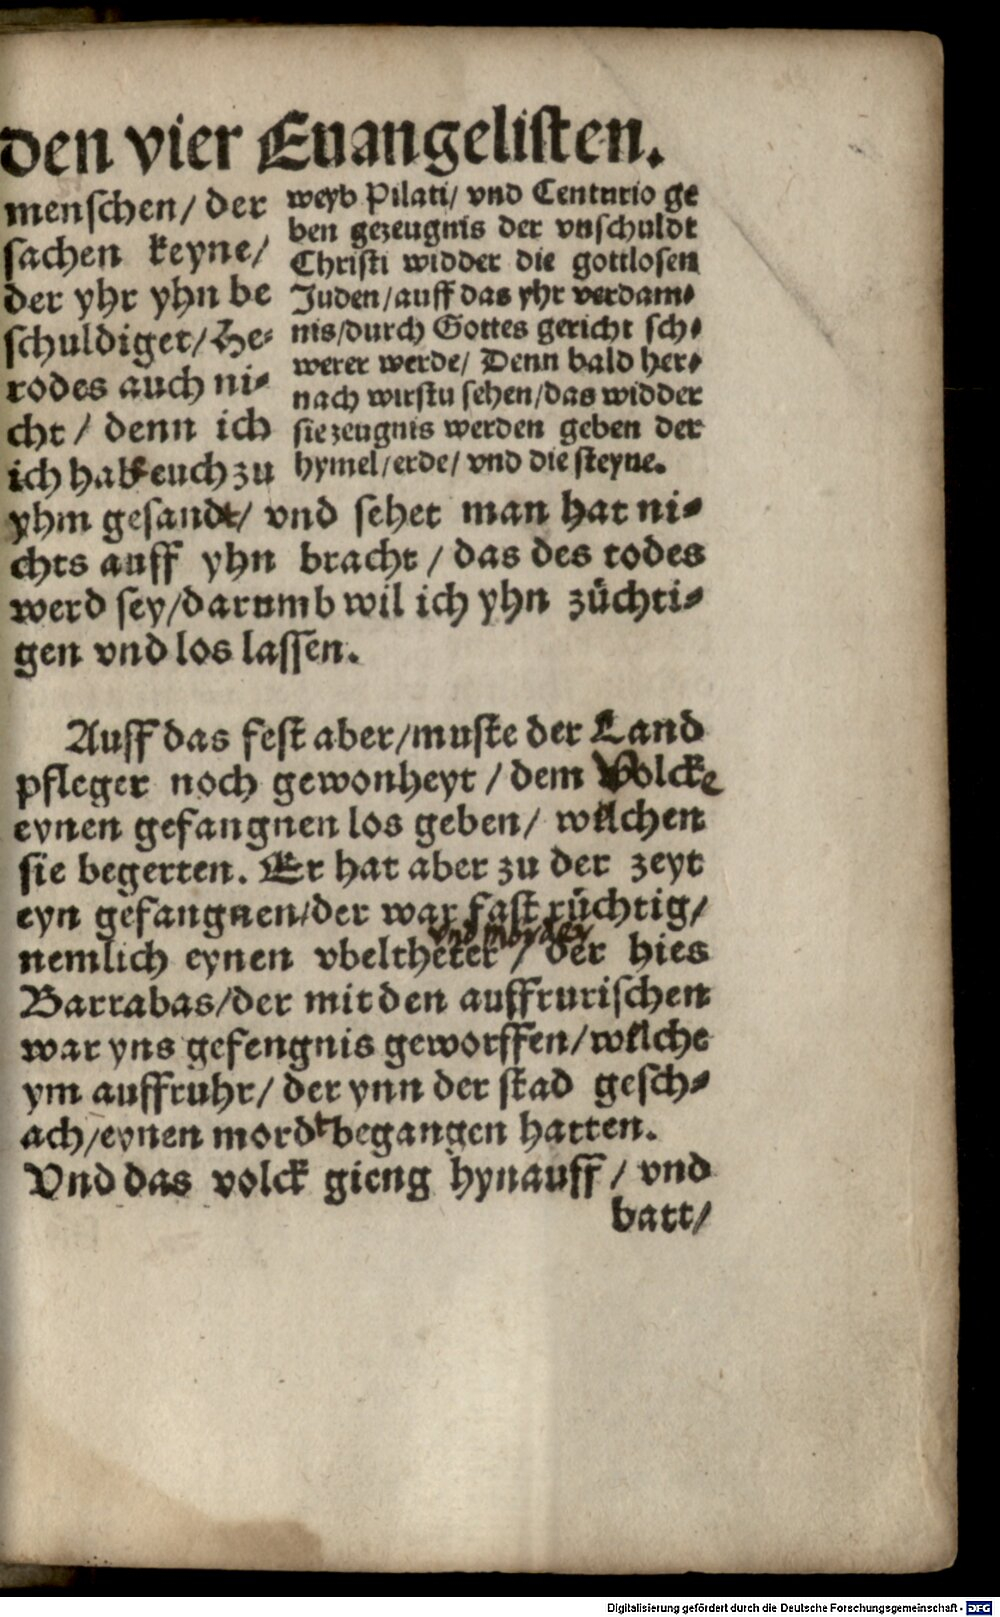 den vier Euangelisten.
menschen/ der
sachen keyne/
der yhr yhn be
schuldiget/ He-
rodes auch ni-
cht / denn ich
ich hab euch zu
weyb Pilati/ vnd Centurio ge
ben gezeugnis der vnschuldt
Christi widder die gottlosen
Juden/auff das yhr verdam-
nis/durch Gottes gericht sch-
werer werde/ Denn bald her-
nach wirstu sehen/das widder
sie zeugnis werden geben der
hymel/erde/ vnd die steyne.
yhm gesandt/ vnd sehet man hat ni-
chts auff yhn bracht / das des todes
werd sey/darumb wil ich yhn züchti-
gen vnd los lassen.
Auff das fest aber/muste der Land
pfleger noch gewonheyt / dem Volcke
eynen gefangnen los geben/ welchen
sie begerten. Er hat aber zu der zeyt
eyn gefangnen/der war fast rüchtig/
vnd morder
nemlich eynen vbeltheter / der hies
Barrabas/der mit den auffrurischen
war yns gefengnis geworffen/welche
ym auffruhr/ der ynn der stad gesch-
ach/eynen mordt begangen hatten.
Vnd das volck gieng hynauff / vnd
batt/
Digitalisierung gefördert durch die Deutsche Forschungsgemeinschaft - DFG